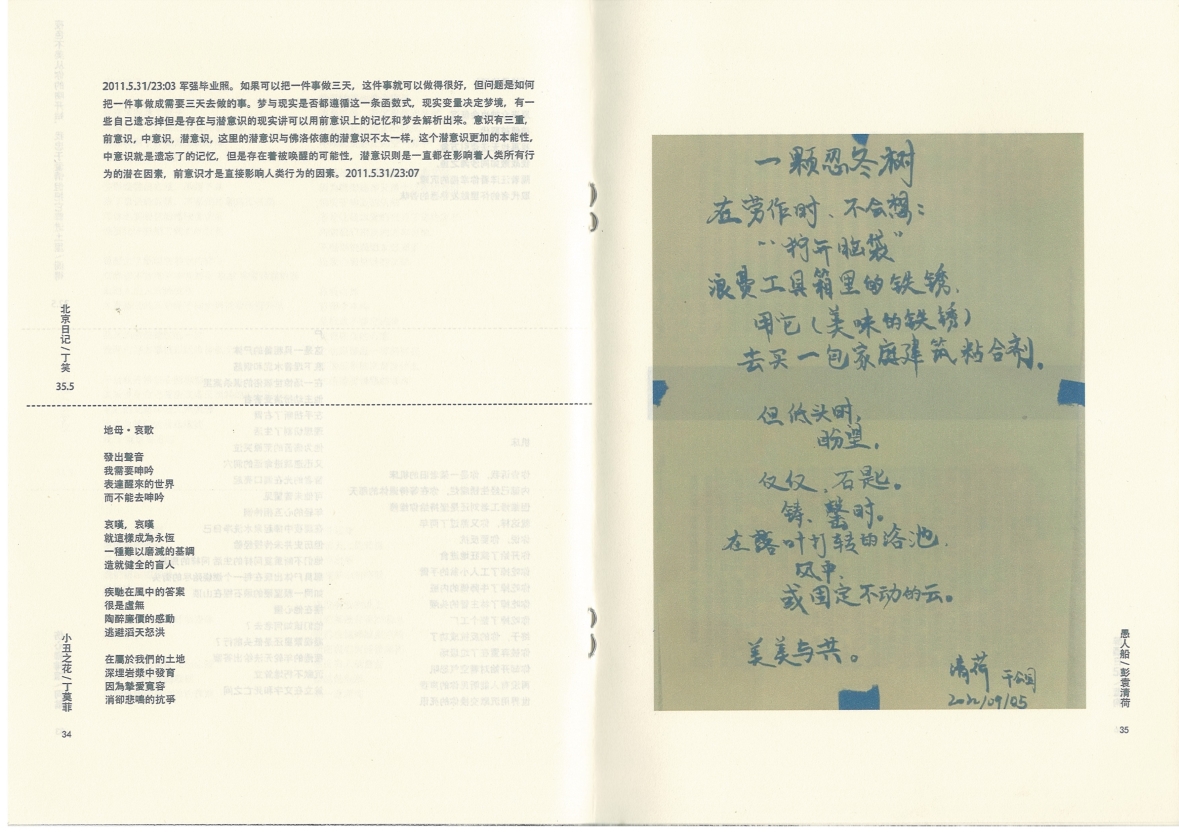 2011.5.31/23:03 军强毕业照。如果可以把一件事做三天，这件事就可以做得很好，但问题是如何
把一件事做成需要三天去做的事。梦与现实是否都遵循这一条函数式，现实变量决定梦境，有一
些自己遗忘掉但是存在与潜意识的现实讲可以用前意识上的记忆和梦去解析出来。意识有三重，
前意识，中意识，潜意识，这里的潜意识与佛洛依德的潜意识不太一样，这个潜意识更加的本能性，
中意识就是遗忘了的记忆，但是存在着被唤醒的可能性，潜意识则是一直都在影响着人类所有行
为的潜在因素，前意识才是直接影响人类行为的因素。2011.5.31/23:07
北京日记/丁笑
35.5
地母·哀歌
發出聲音
我需要呻吟
表達醒來的世界
而不能去呻吟
哀嘆，哀嘆
就這樣成為永恆
一種難以磨滅的基調
造就健全的盲人
疾馳在風中的答案
很是虛無
陶醉廉價的感動
逃避滔天怒洪
在屬於我們的土地
深埋岩漿中發育
因為摯愛寬容
消卻悲鳴的抗爭
小丑之花/丁莫菲
34
一颗忍冬树
在劳作时、不会想：
浪费工具箱里的铁锈，
用它（美味的铁锈）
去买一包家庭建筑粘合剂。
但低头时，
盼望，
仅仅，石匙。
铸、凿时。
在落叶打转的洛池，
风中，
或固定不动的云。
美美与共。
清荷
2022/09/05
愚人船/彭袁清荷
35